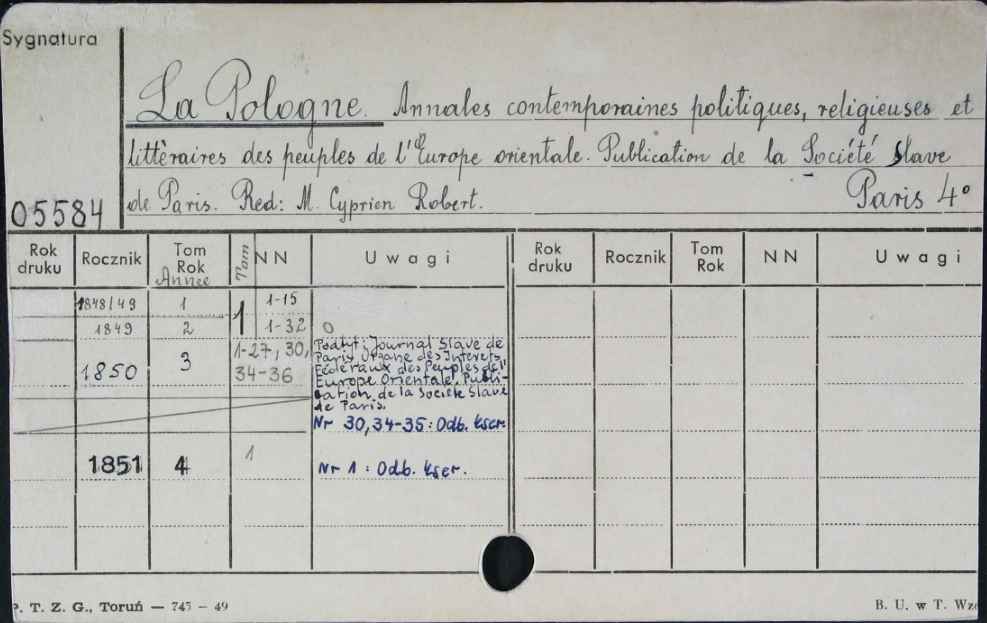 Sygnatura
La Pologne. Annales contemporaines politiques, religieuses et
littèraires des peuples de l'Europe orientale. Publication de la Société Slave
de Paris. Red: M. Cyprien Robert. Paris 4°
05584
Rok druku Rocznik Tom Rok Année Tom NN Uwagi Rok druku Rocznik Tom Rok NN Uwagi
1848/49 1 1 1-15
1849 2 1-32 0
1850 3 1-27, 30, 34-36
Podtyt: Journal Slave de
Paris Organe des Interets
Féderaux des Peuples de l'
Europe Orientale. Publi-
cation de la Societe Slave
de Paris.
Nr 30, 34-35: Odb. kser.
1851 4 1 Nr 1: Odb. kser.
P. T. Z. G., Toruń — 745 — 49 B. U. w T. Wz